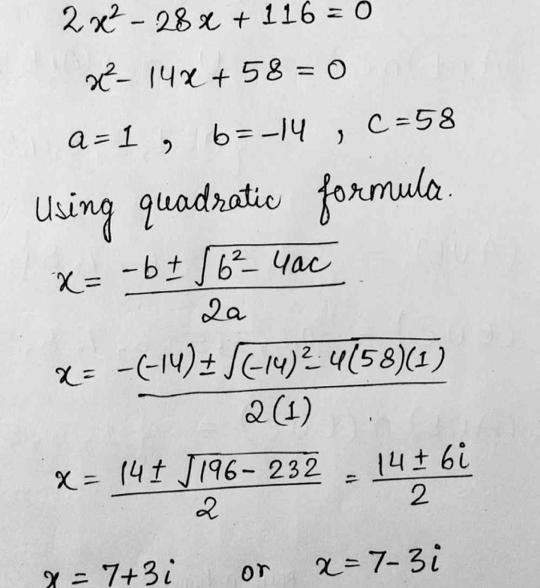 2x² - 28x + 116 = 0
x² - 14x + 58 = 0
a = 1 , b = -14 , c = 58
Using quadratic formula.
x = (-b ± √(b² - 4ac)) / 2a
x = (-(-14) ± √((-14)² - 4(58)(1))) / 2(1)
x = (14 ± √(196 - 232)) / 2 = (14 ± 6i) / 2
x = 7+3i or x = 7-3i